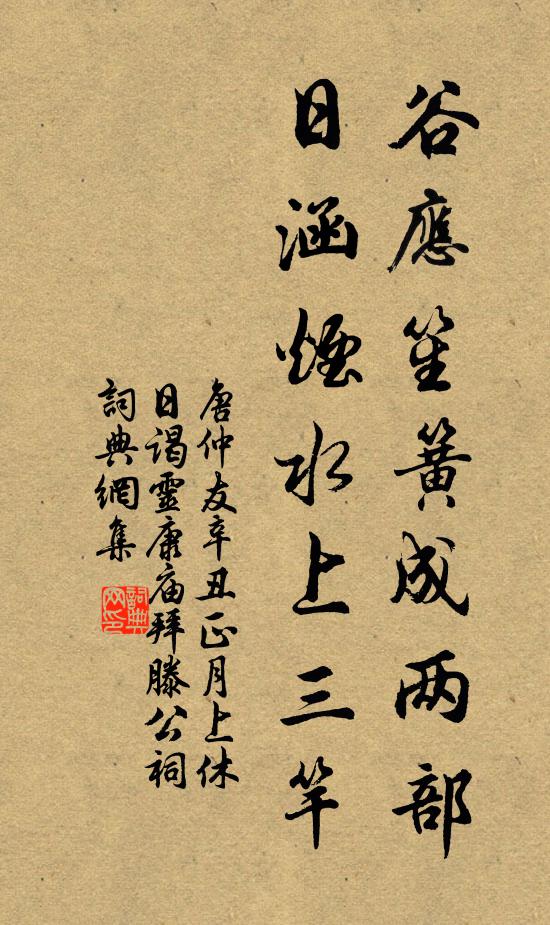 谷應笙簧成两部
日涵煙水上三竿
唐仲友辛丑正月上休
日谒靈康庙拜滕公祠
詞典網集
詞典网印